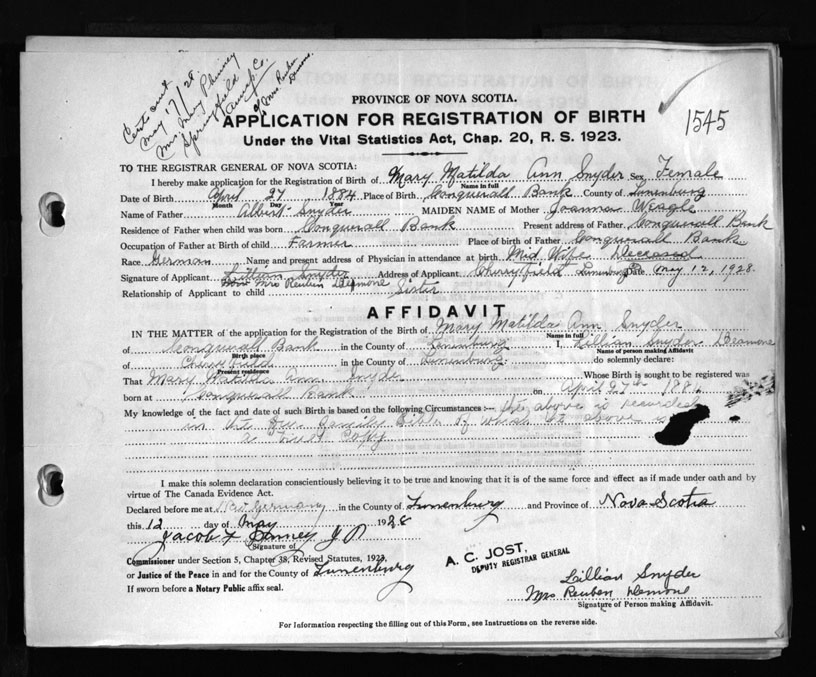 Cert sent
May 17/28
Mrs. Mary Phinney
Springfield
Anna. Co.
c/o Mrs Reuben
Demone.
1545
PROVINCE OF NOVA SCOTIA.
APPLICATION FOR REGISTRATION OF BIRTH
Under the Vital Statistics Act, Chap. 20, R. S. 1923.
TO THE REGISTRAR GENERAL OF NOVA SCOTIA:
I hereby make application for the Registration of Birth of Mary Matilda Ann Snyder Sex Female
Name in full
Date of Birth April 27 1884 Place of Birth Conquerall Bank County of Lunenburg
Month Day Year
Name of Father Albert Snyder MAIDEN NAME of Mother Joanna Weagle
Residence of Father when child was born Conquerall Bank Present address of Father, Conquerall Bank
Occupation of Father at Birth of child Farmer Place of birth of Father Conquerall Bank
Race German Name and present address of Physician in attendance at birth Mid Wife Deceased
Signature of Applicant Lillian Snyder Address of Applicant Cherryfield Lunenburg Date May 12, 1928.
Now Mrs Reuben Demone
Relationship of Applicant to child Sister
AFFIDAVIT
IN THE MATTER of the application for the Registration of the Birth of Mary Matilda Ann Snyder
Name in full
of Conquerall Bank in the County of Lunenburg I, Lillian Snyder Demone
Birth place Name of person making Affidavit
of Cherryfield in the County of Lunenburg do solemnly declare:
Present residence
That Mary Matilda Ann Snyder Whose Birth is sought to be registered was
born at Conquerall Bank on April 27th 188
My knowledge of the fact and date of such Birth is based on the following Circumstances:— the above is recorded
in the family Bible of which the above is
a true Copy
I make this solemn declaration conscientiously believing it to be true and knowing that it is of the same force and effect as if made under oath and by
virtue of The Canada Evidence Act.
Declared before me at New Germany in the County of Lunenburg and Province of Nova Scotia
this 12 day of May 1928
Jacob F J P
Signature of
Commissioner under Section 5, Chapter 38, Revised Statutes, 1923,
or Justice of the Peace in and for the County of Lunenburg
If sworn before a Notary Public affix seal.
A. C. JOST,
DEPUTY REGISTRAR GENERAL
Lillian Snyder
Mrs Reuben Demone
Signature of Person making Affidavit.
For Information respecting the filling out of this Form, see Instructions on the reverse side.